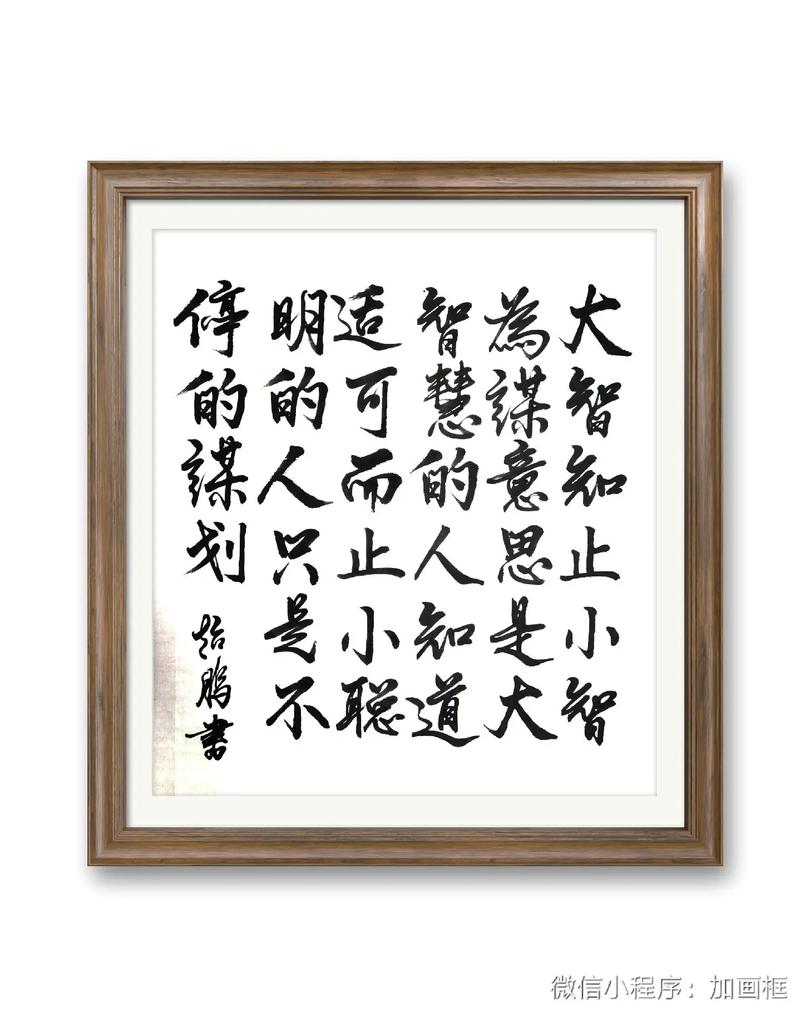 大智知止小智
為謀意思是大
智慧的人知道
适可而止小聪
明的人只是不
停的謀划
鹏書
微信小程序：加画框